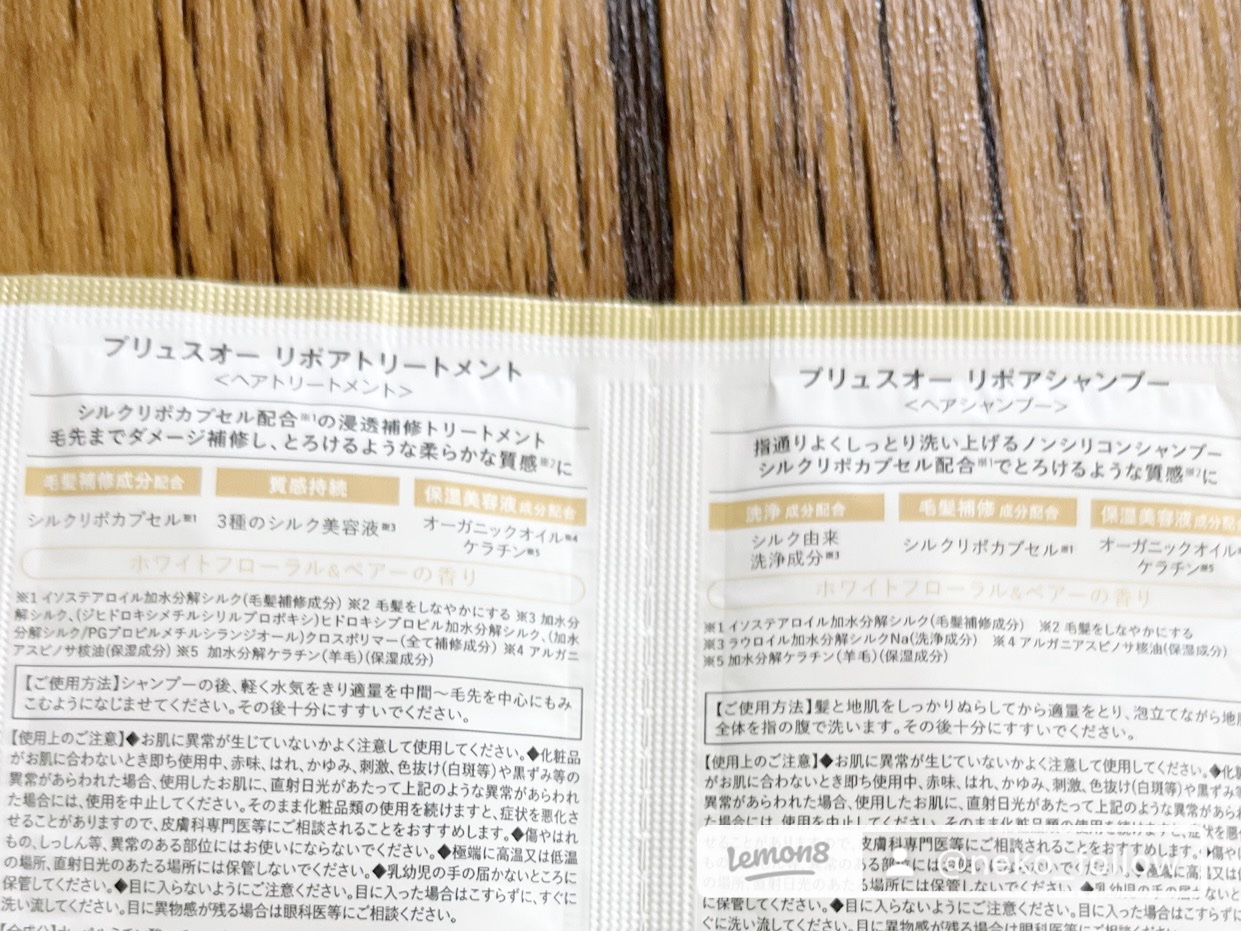 プリュスオー リポアトリートメント
<ヘアトリートメント>
シルクリポカプセル配合※1の浸透補修トリートメント
毛先までダメージ補修し、とろけるような柔らかな質感※2に
毛髪補修成分配合
シルクリポカプセル※1
質感持続
3種のシルク美容液※3
保湿美容液成分配合
オーガニックオイル※4
ケラチン※5
ホワイトフローラル&ペアーの香り
※1 イソステアロイル加水分解シルク(毛髪補修成分) ※2 毛髪をしなやかにする ※3 加水分
解シルク、(ジヒドロキシメチルシリルプロポキシ)ヒドロキシプロピル加水分解シルク、(加水
分解シルク/PGプロピルメチルシランジオール)クロスポリマー(全て補修成分) ※4 アルガニ
アスピノサ核油(保湿成分) ※5 加水分解ケラチン(羊毛)(保湿成分)
【ご使用方法】シャンプーの後、軽く水気をきり適量を中間～毛先を中心にもみ
こむようになじませてください。その後十分にすすいでください。
【使用上のご注意】◆お肌に異常が生じていないかよく注意して使用してください。◆化粧品
がお肌に合わないとき即ち使用中、赤味、はれ、かゆみ、刺激、色抜け(白斑等)や黒ずみ等の
異常があらわれた場合、使用したお肌に、直射日光があたって上記のような異常があらわれ
た場合には、使用を中止してください。そのまま化粧品類の使用を続けますと、症状を悪化さ
せることがありますので、皮膚科専門医等にご相談されることをおすすめします。◆傷やはれ
もの、しっしん等、異常のある部位にはお使いにならないでください。◆極端に高温又は低温
の場所、直射日光のあたる場所には保管しないでください。◆乳幼児の手の届かないところに
保管してください。◆目に入らないようにご注意ください。目に入った場合はこすらずに、すぐに
洗い流してください。目に異物感が残る場合は眼科医等にご相談ください。
プリュスオー リポアシャンプー
<ヘアシャンプー>
指通りよくしっとり洗い上げるノンシリコンシャンプー
シルクリポカプセル配合※1でとろけるような質感※2に
洗浄成分配合
シルク由来
洗浄成分※3
毛髪補修成分配合
シルクリポカプセル※1
保湿美容液成分配合
オーガニックオイル※4
ケラチン※5
ホワイトフローラル&ペアーの香り
※1 イソステアロイル加水分解シルク(毛髪補修成分) ※2 毛髪をしなやかにする
※3 ラウロイル加水分解シルクNa(洗浄成分) ※4 アルガニアスピノサ核油(保湿成分)
※5 加水分解ケラチン(羊毛)(保湿成分)
【ご使用方法】髪と地肌をしっかりぬらしてから適量をとり、泡立てながら地肌
全体を指の腹で洗います。その後十分にすすいでください。
【使用上のご注意】◆お肌に異常が生じていないかよく注意して使用してください。◆化粧
がお肌に合わないとき即ち使用中、赤味、はれ、かゆみ、刺激、色抜け(白斑等)や黒ずみ等
異常があらわれた場合、使用したお肌に、直射日光があたって上記のような異常があらわ
た場合には、使用を中止してください。そのまま化粧品類の使用を続けますと、症状を悪化
皮膚科専門医等にご相談されることをおすすめします。
ある部位にはお使いにならないでください。
場所には保管しないでください。
に保管してください。◆目に入らないようにご注意ください。目に入った場合はこすらずに
ぐに洗い流してください。目に異物感が残る場合は眼科医等にご相談ください。
Lemon8